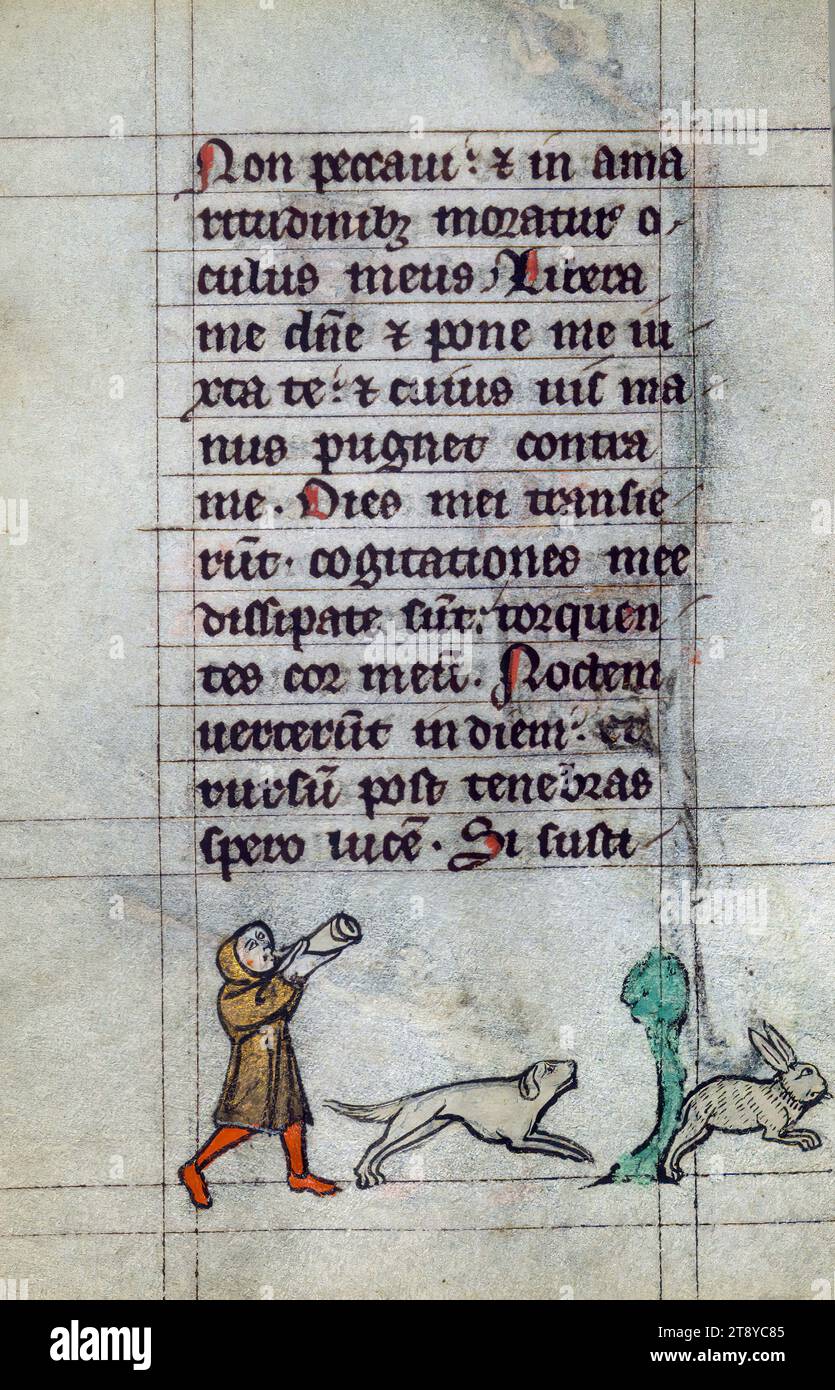 Non peccaui: ⁊ in ama
ritudinibꝫ moratur o
culus meus. Libera
me dn̄e ⁊ pone me iu
xta te: ⁊ cuius uis ma
nus pugnet contra
me. Dies mei transie
rūt. cogitationes mee
dissipate sūt: torquen
tes cor meū. Noctem
uerterūt in diem: et
rursū post tenebras
spero lucē. Si susti
alamy
Image ID: 2T8YC85
www.alamy.com